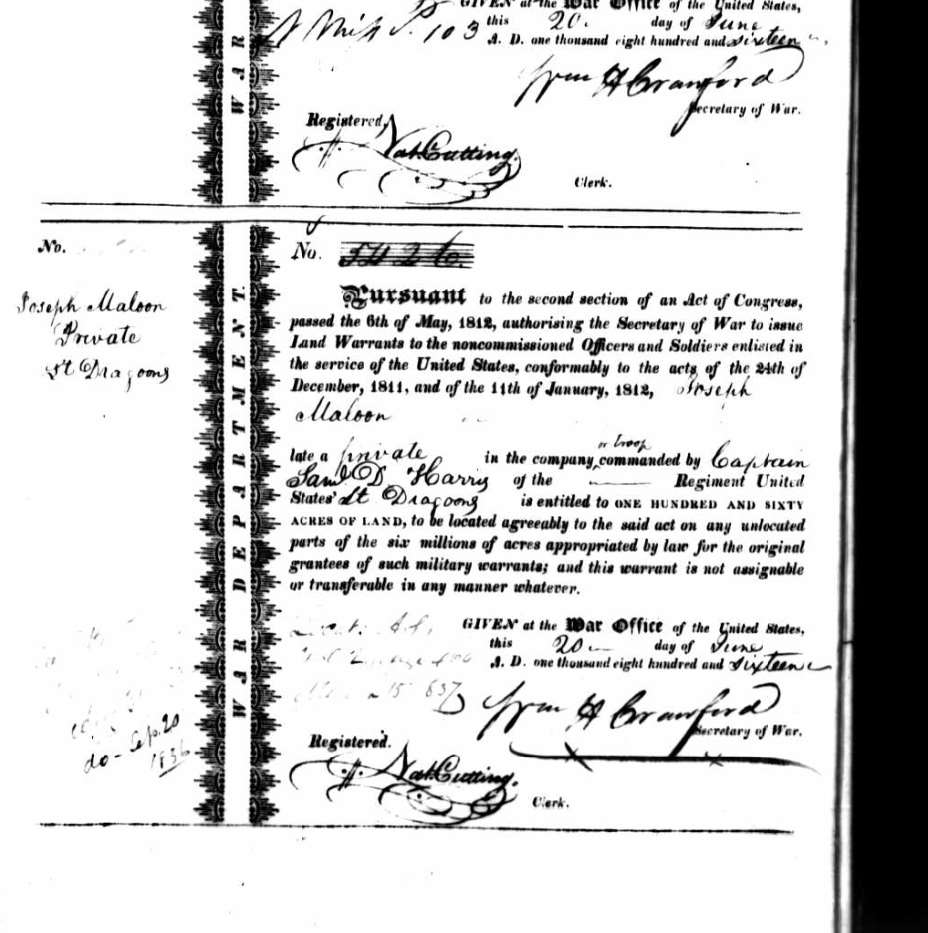 GIVEN at the War Office of the United States,
this 20. day of June
A. D. one thousand eight hundred and sixteen
103
Wm H Crawford
Secretary of War.
Registered,
Nat Cutting.
Clerk.
WAR
No.
Joseph Maloon
Private
Lt Dragoons
WAR DEPARTMENT.
No.
Pursuant to the second section of an Act of Congress,
passed the 6th of May, 1812, authorising the Secretary of War to issue
Land Warrants to the noncommissioned Officers and Soldiers enlisted in
the service of the United States, conformably to the acts of the 24th of
December, 1811, and of the 11th of January, 1812, Joseph
Maloon
or troop
late a private in the company commanded by Captain
Saml D Harris of the Regiment United
States' Lt Dragoons is entitled to ONE HUNDRED AND SIXTY
ACRES OF LAND, to be located agreeably to the said act on any unlocated
parts of the six millions of acres appropriated by law for the original
grantees of such military warrants; and this warrant is not assignable
or transferable in any manner whatever.
GIVEN at the War Office of the United States,
this 20 day of June
A. D. one thousand eight hundred and sixteen
Wm H Crawford
Secretary of War.
do - Sep. 20
1836
Registered.
Nat Cutting.
Clerk.